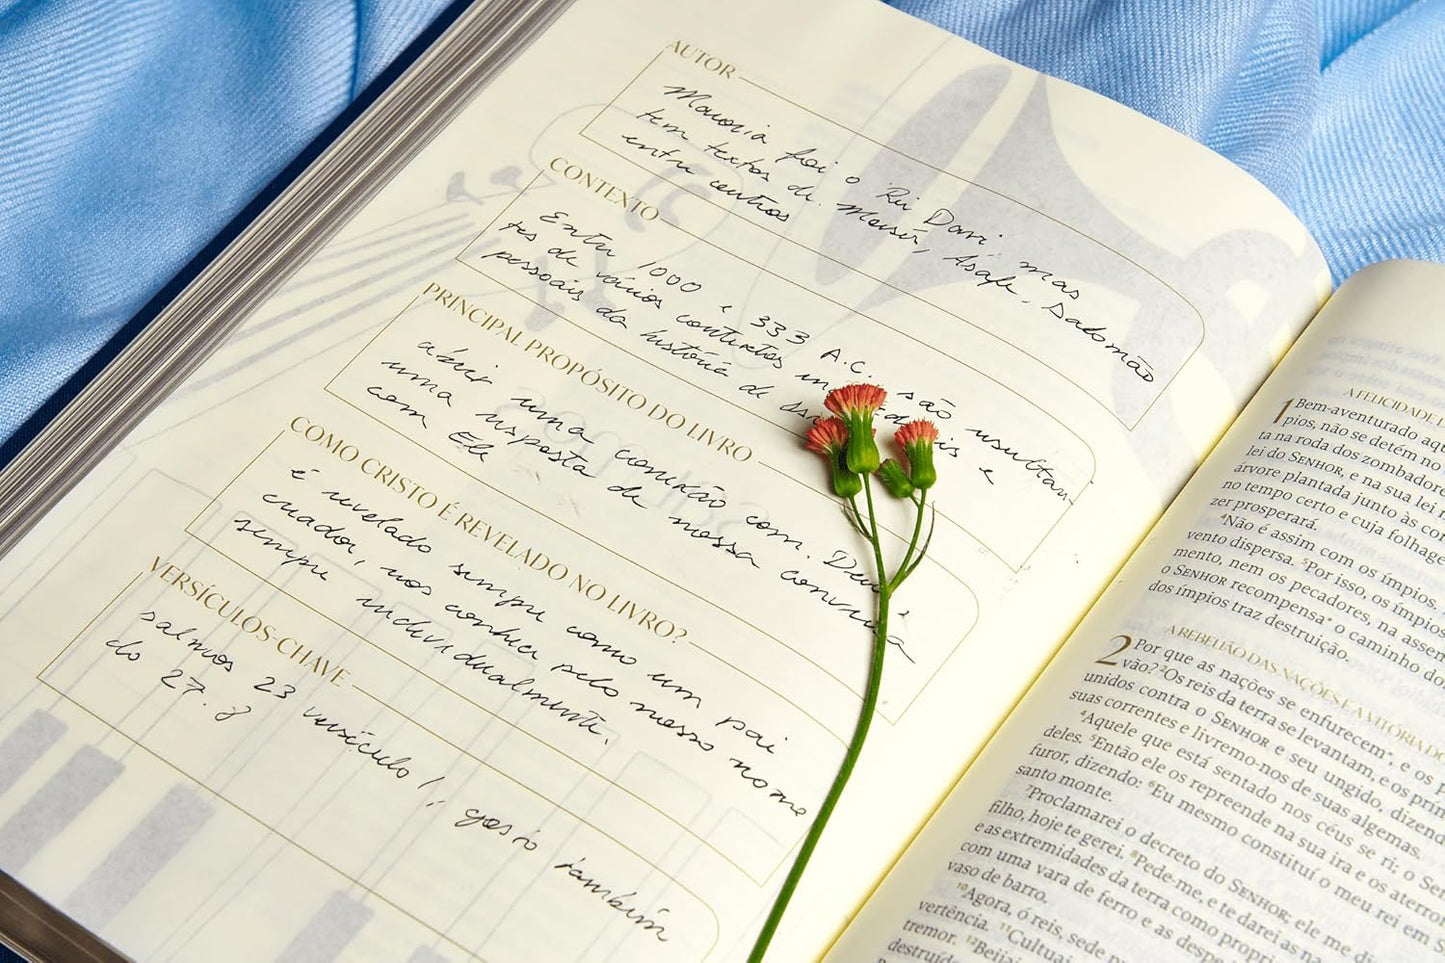 AUTOR
Maioria foi o Rei Davi, mas
tem textos de Moisés, Asafe, Salomão
entre outros
CONTEXTO
Entre 1000 e 333 A.C. são resultan
tes de vários contextos e
pessoais da história de
PRINCIPAL PROPÓSITO DO LIVRO
uma conexão com Deus,
uma resposta de nossa conversa
com Ele
COMO CRISTO É REVELADO NO LIVRO?
é revelado sempre como um pai
criador, nos conhece pelo nosso nome
sempre individualmente.
VERSÍCULOS-CHAVE
salmos 23 versículo 1; gosto também
do 27.
A FELICIDADE
1 Bem-aventurado aq
pios, não se detém no
ta na roda dos zombadore
lei do SENHOR, e na sua lei
árvore plantada junto às cor
no tempo certo e cuja folhage
zer prosperará.
4Não é assim com os ímpios.
vento dispersa. 5Por isso, os ímpios
mento, nem os pecadores, na assem
o SENHOR recompensa* o caminho do
dos ímpios traz destruição.
A REBELIÃO DAS NAÇÕES E A VITÓRIA DO
2 Por que as nações se enfurecem*, e os p
vão? 2Os reis da terra se levantam, e os prín
unidos contra o SENHOR e seu ungido, dizend
suas correntes e livremo-nos de suas algemas.
4Aquele que está sentado nos céus se ri; o Se
deles. 5Então ele os repreende na sua ira e os aterro
furor, dizendo: 6Eu mesmo constituí o meu rei em S
santo monte.
7Proclamarei o decreto do SENHOR; ele me di
filho, hoje te gerei. 8Pede-me, e te darei as na
e as extremidades da terra como propri
com uma vara de ferro e as despe
vaso de barro.
10Agora, ó reis, sede p
vertência. 11Cultuai
tremor. 12Beijai
destruíd